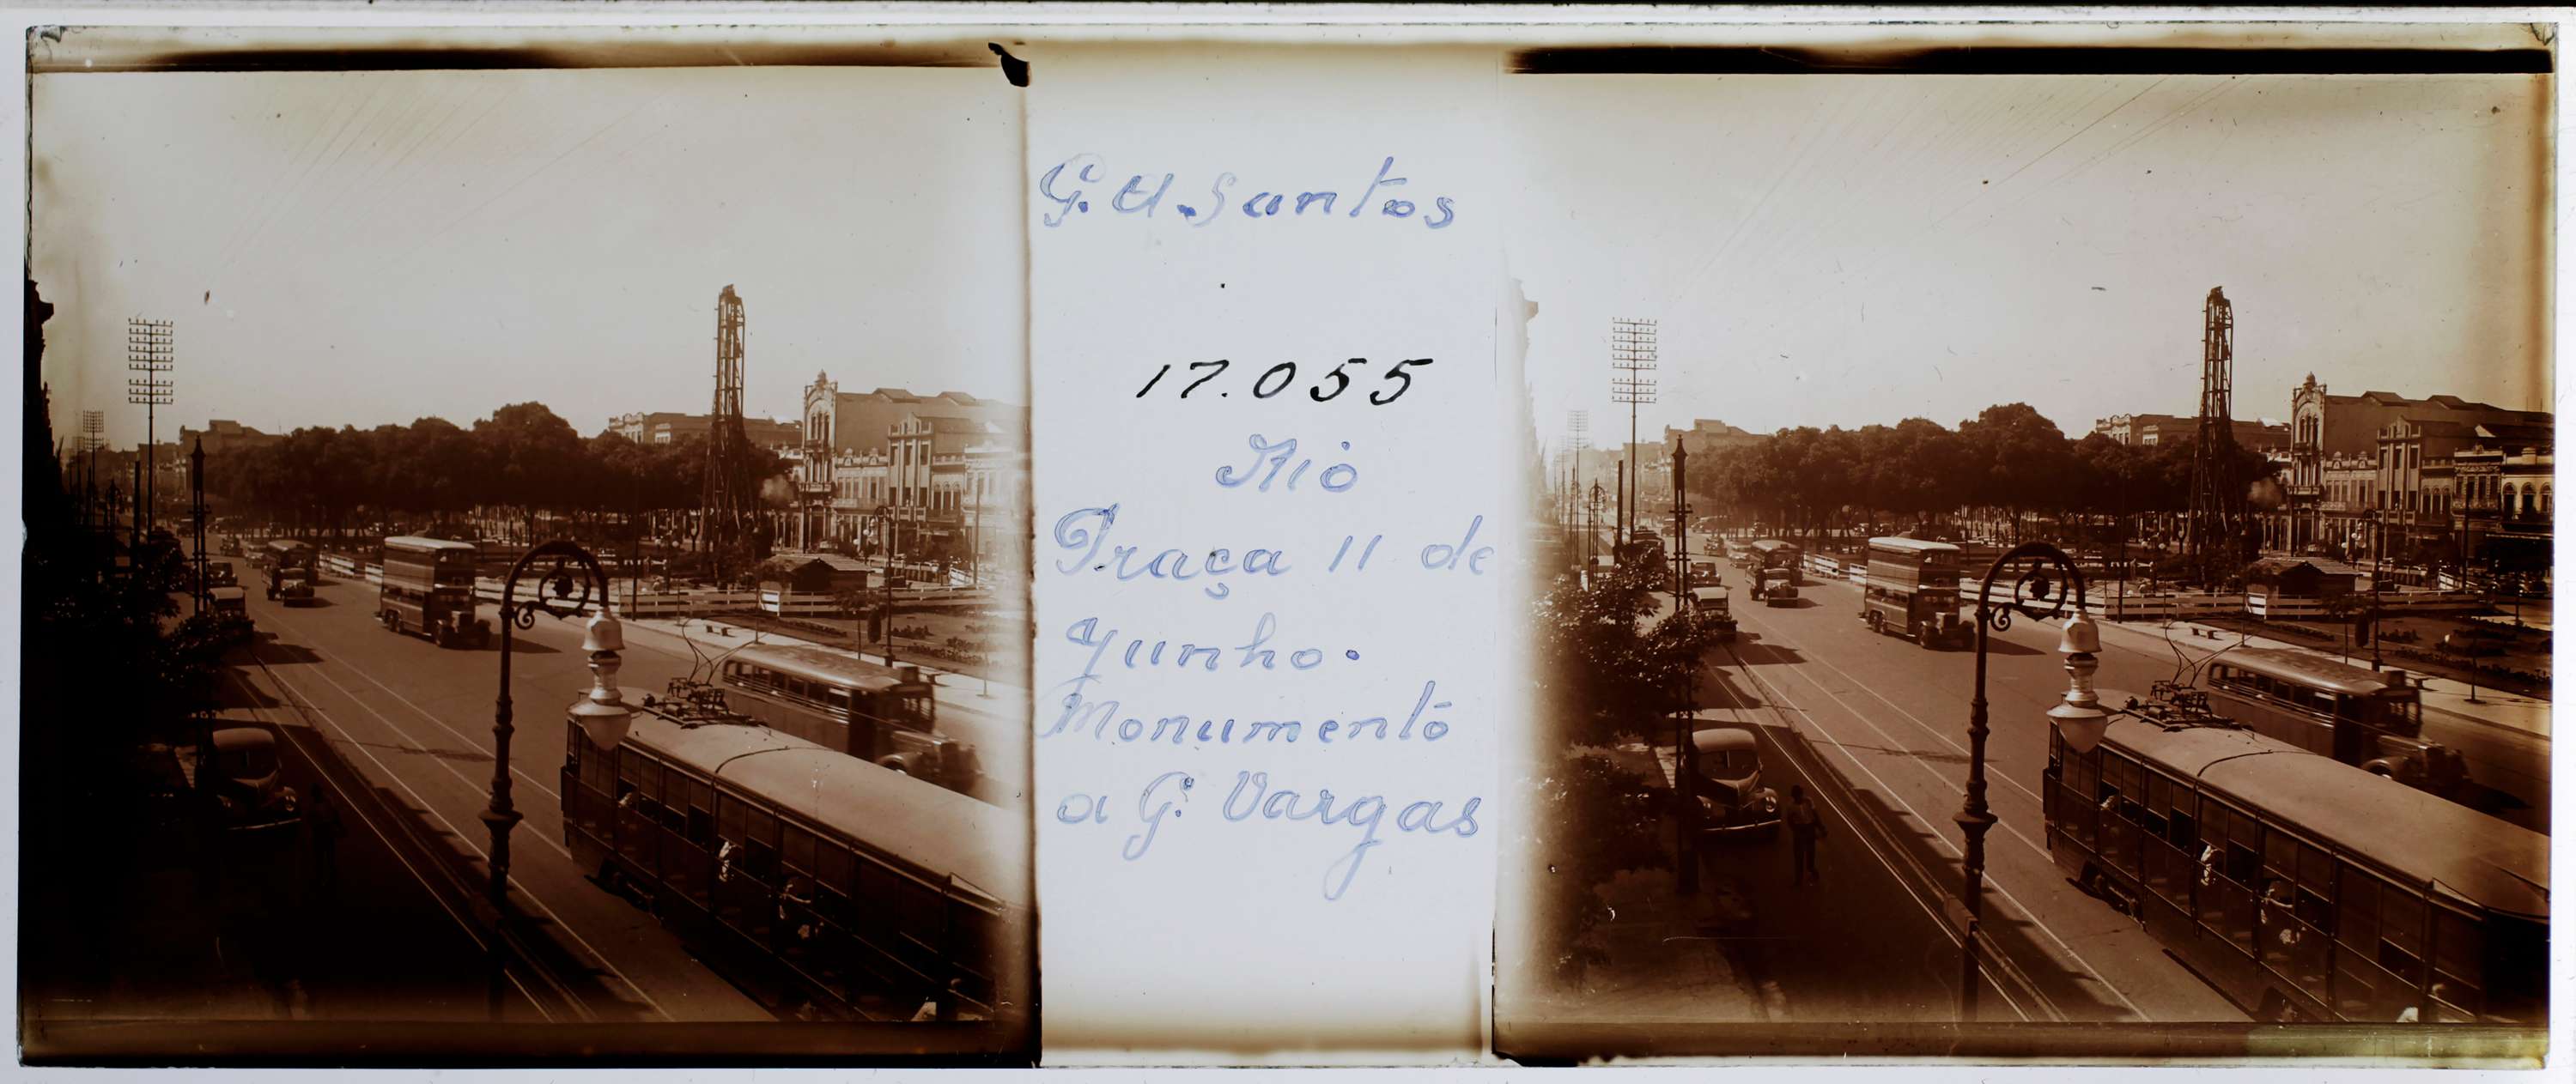 G. A. Santos
17.055
Rio
Praça 11 de
Junho.
Monumento
a G. Vargas